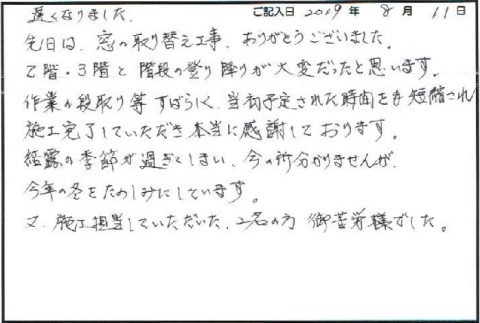 遅くなりました。 ご記入日 2019 年 8 月 11 日
先日は、窓の取り替え工事、ありがとうございました。
2階・3階と階段の登り降りが大変だったと思います。
作業の段取り等すばらしく、当初予定された時間を短縮され
施工完了していただき本当に感謝しております。
結露の季節が過ぎてしまい、今の所分かりませんが、
今年の冬をたのしみにしています。
又、施工担当していただいた、2名の方 御苦労様でした。